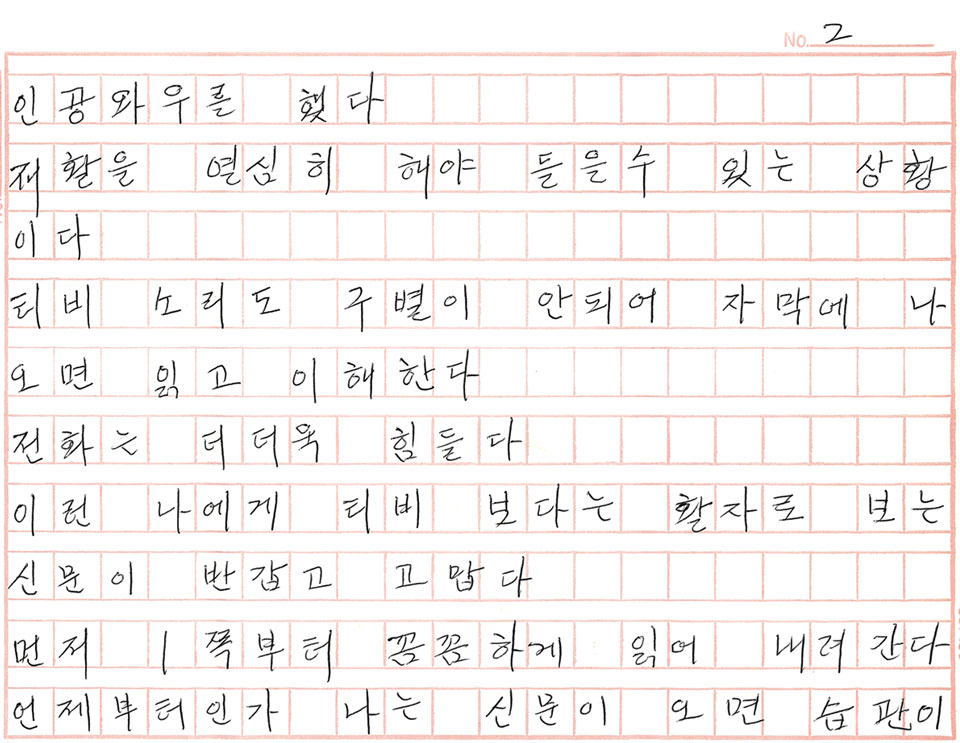 No. 2
인공와우를 했다
재활을 열심히 해야 들을수 있는 상황
이다
티비 소리도 구별이 안되어 자막에 나
오면 읽고 이해한다
전화는 더더욱 힘들다
이런 나에게 티비 보다는 활자로 보는
신문이 반갑고 고맙다
먼저 1쪽부터 꼼꼼하게 읽어 내려간다
언제부터인가 나는 신문이 오면 습관이